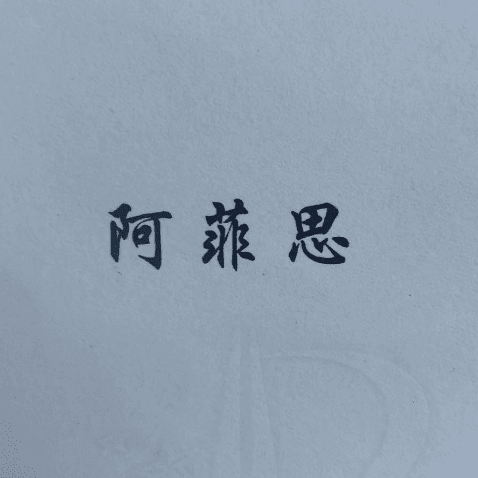 阿菲思